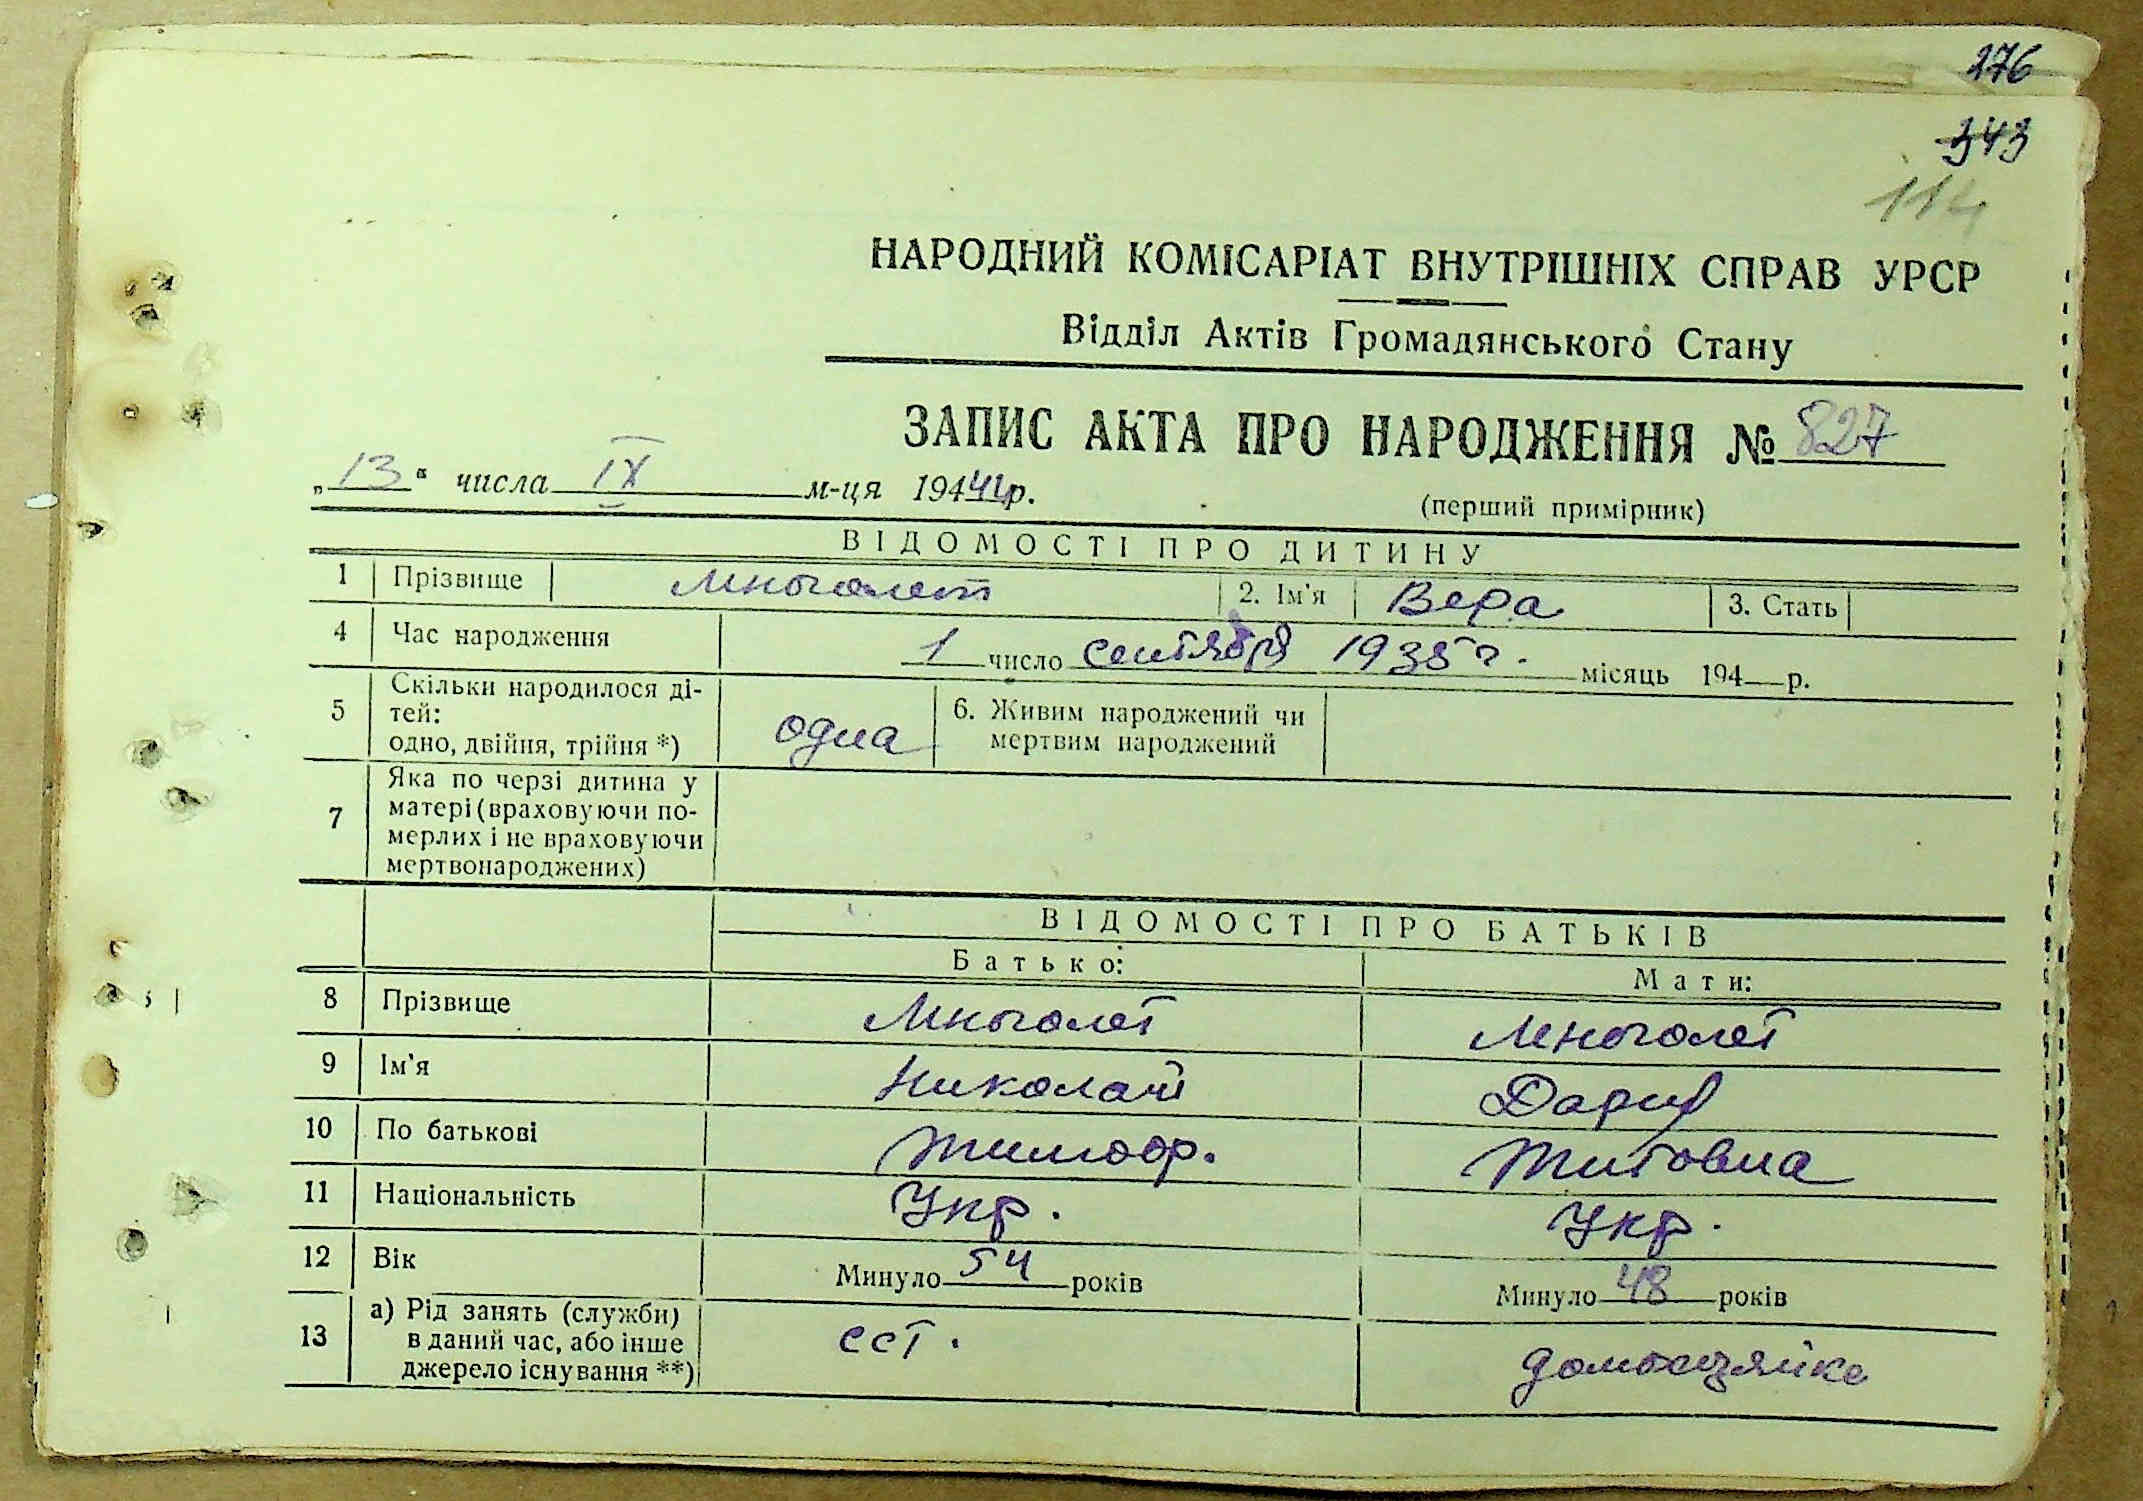 276
343
114
НАРОДНИЙ КОМІСАРІАТ ВНУТРІШНІХ СПРАВ УРСР
Відділ Актів Громадянського Стану
ЗАПИС АКТА ПРО НАРОДЖЕННЯ № 827
„13“ числа IX м-ця 1944 р.
(перший примірник)
ВІДОМОСТІ ПРО ДИТИНУ
1 Прізвище Многолет 2. Ім'я Вера 3. Стать
4 Час народження 1 число сентября 1935 г. місяць 194 р.
5 Скільки народилося ді-
тей:
одно, двійня, трійня *) одна
6. Живим народжений чи
мертвим народжений
7 Яка по черзі дитина у
матері (враховуючи по-
мерлих і не враховуючи
мертвонароджених)
ВІДОМОСТІ ПРО БАТЬКІВ
Батько: Мати:
8 Прізвище Многолет Многолет
9 Ім'я Николай Дария
10 По батькові Тимоф. Титовна
11 Національність Укр. Укр.
12 Вік Минуло 54 років Минуло 48 років
13 а) Рід занять (служби)
в даний час, або інше
джерело існування **) домохозяйка